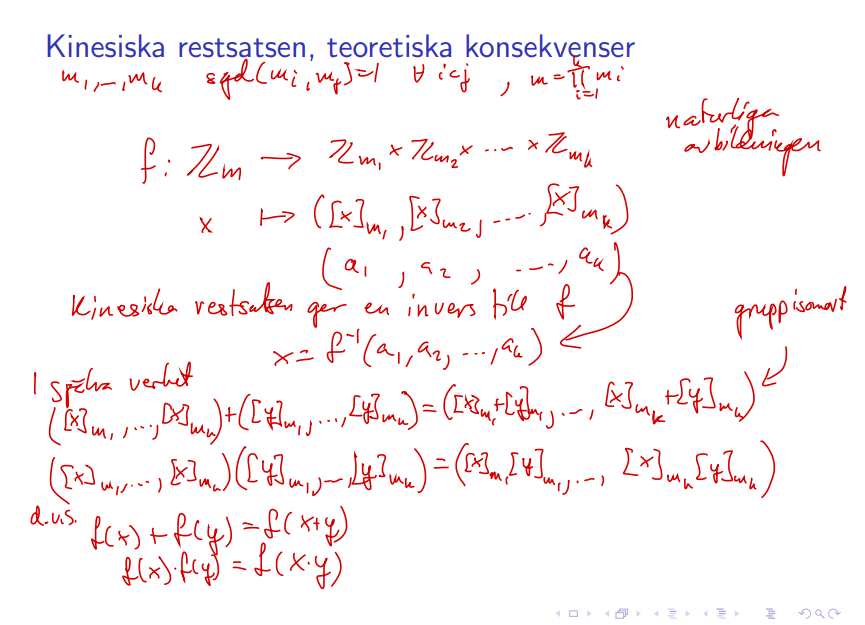 Kinesiska restsatsen, teoretiska konsekvenser
m₁,…,mₖ sgd(mᵢ,mⱼ)=1 ∀ i<j , m = ∏ᵢ₌₁ᵏ mᵢ
naturliga
avbildningen
f : ℤₘ → ℤₘ₁ × ℤₘ₂ × ⋯ × ℤₘₖ
x ↦ ([x]ₘ₁, [x]ₘ₂, …, [x]ₘₖ)
(a₁, a₂, …, aₖ)
Kinesiska restsatsen ger en invers till f
gruppisomorf
x = f⁻¹(a₁, a₂, …, aₖ)
I verket
([x]ₘ₁, …, [x]ₘₖ) + ([y]ₘ₁, …, [y]ₘₖ) = ([x]ₘ₁+[y]ₘ₁, …, [x]ₘₖ+[y]ₘₖ)
([x]ₘ₁, …, [x]ₘₖ)([y]ₘ₁, …, [y]ₘₖ) = ([x]ₘ₁[y]ₘ₁, …, [x]ₘₖ[y]ₘₖ)
d.v.s. f(x) + f(y) = f(x+y)
f(x)·f(y) = f(x·y)